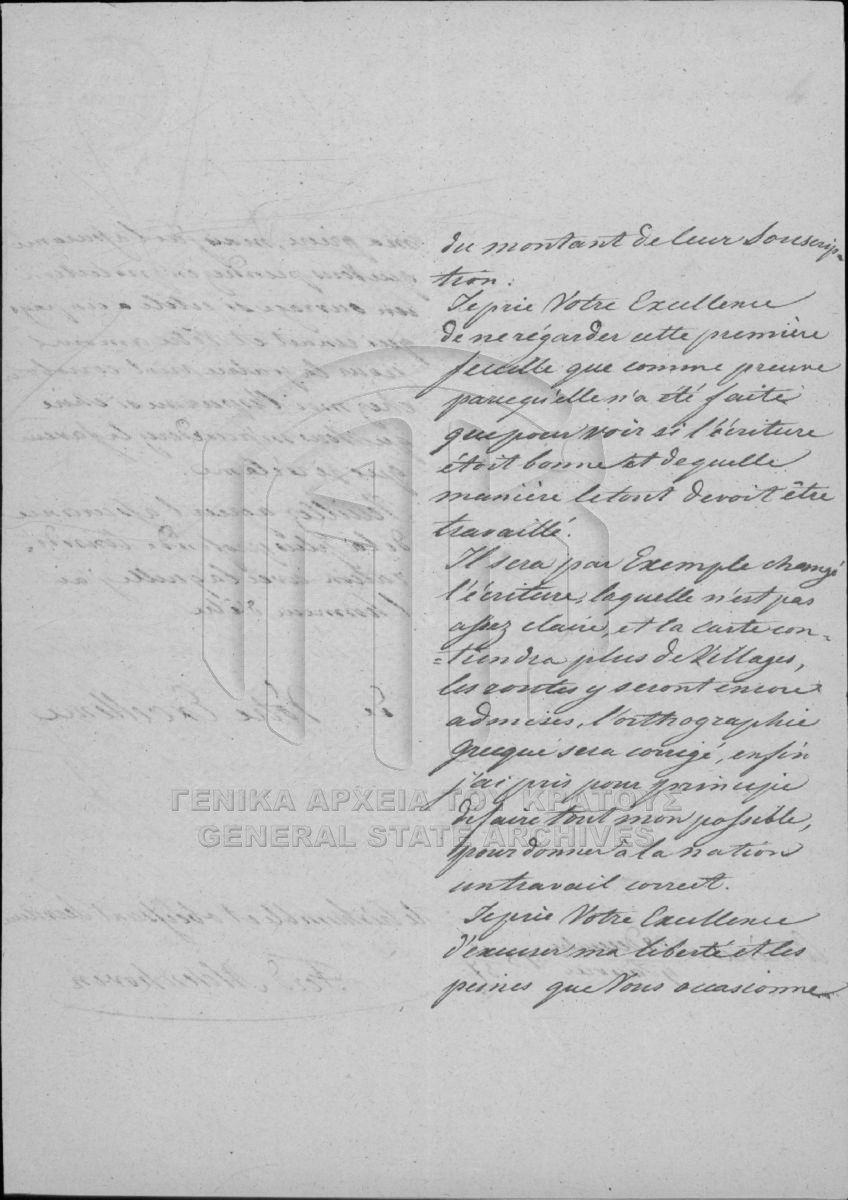 du montant de leur Souscrip-
tion.
Je prie Votre Excellence
de ne régarder cette première
feuille que comme preuve
parcequ'elle n'a été faite
que pour voir si l'écriture
étoit bonne et de quelle
manière le tout devoit être
travaillé.
Il sera par Exemple changé
l'écriture, laquelle n'est pas
assez claire, et la carte con-
=tiendra plus de Villages,
les routes y seront encore
admises, l'orthographie
Grecque sera corrigé, enfin
j'ai pris pour principe
de faire tout mon possible,
pour donner à la nation
un travail correct.
Je prie Votre Excellence
d'excuser ma liberté et les
peines que Vous occasionne
ΓΕΝΙΚΑ ΑΡΧΕΙΑ ΤΟΥ ΚΡΑΤΟΥΣ
GENERAL STATE ARCHIVES